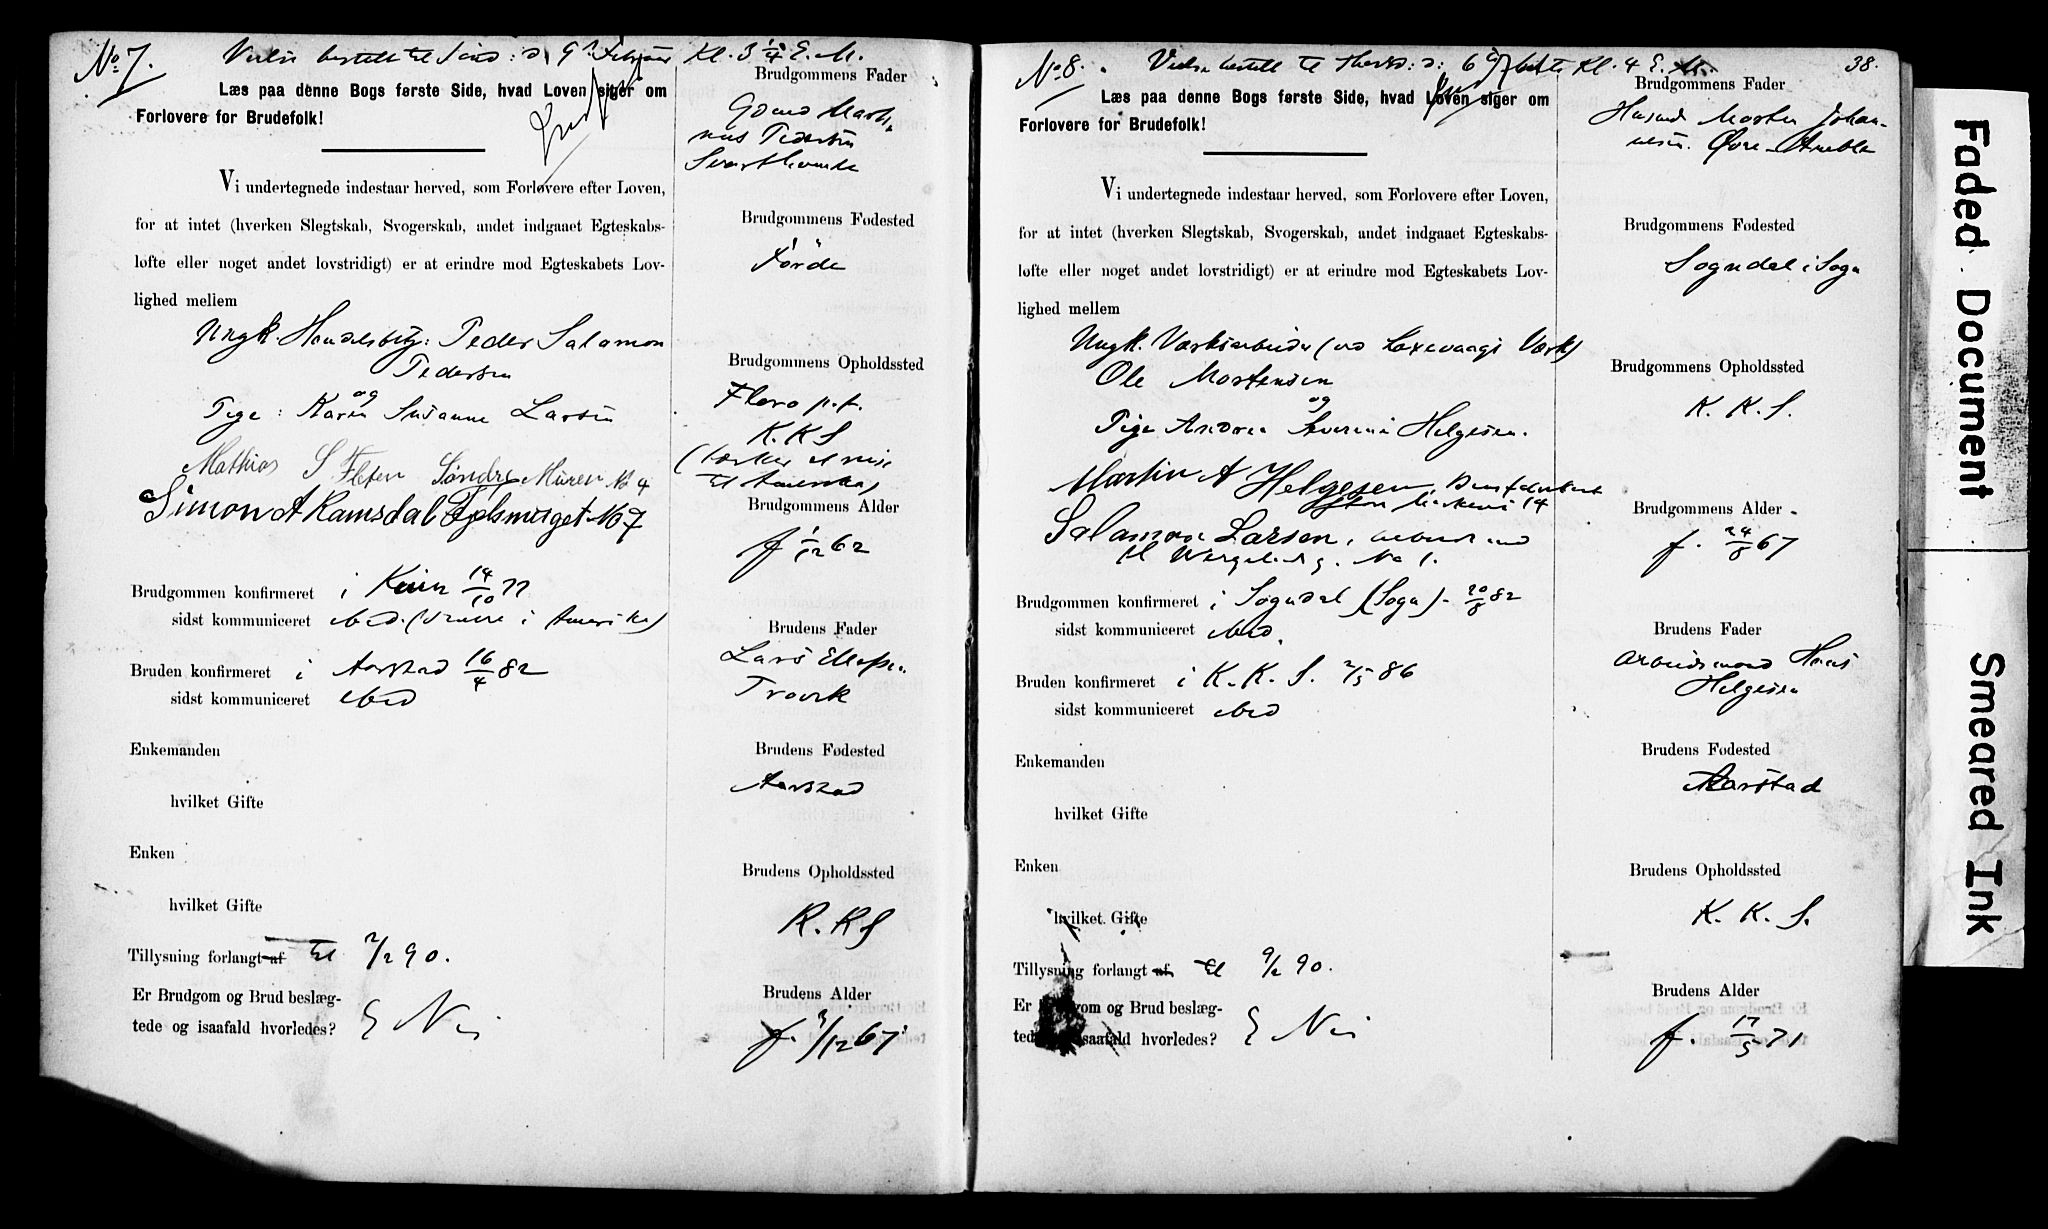 No 7. Vielse bestilt til Sønd: d. 9de Februar Kl. 3 1/4 E. M.
Læs paa denne Bogs første Side, hvad Loven siger om
Forlovere for Brudefolk!
Vi undertegnede indestaar herved, som Forlovere efter Loven,
for at intet (hverken Slegtskab, Svogerskab, andet indgaaet Egteskabs-
løfte eller noget andet lovstridigt) er at erindre mod Egteskabets Lov-
lighed mellem
Ungk. Handelsbetj: Peder Salamon
Pedersen
og
Pige: Karen Susanne Larsen
Mathias S Fleten Søndre Muren No 4
Simon A Ramsdal No 7
Brudgommen konfirmeret i Kinn 14/10 77
sidst kommuniceret ibid. (senere i Amerika)
Bruden konfirmeret i Aarstad 16/4 82
sidst kommuniceret ibid
Enkemanden
hvilket Gifte
Enken
hvilket Gifte
Tillysning forlangt af til 2/2 90.
Er Brudgom og Brud beslæg-
tede og isaafald hvorledes? Nei
Brudgommens Fader
Gdmd Marti-
nus Pedersen
Svarthumle
Brudgommens Fødested
Førde
Brudgommens Opholdssted
Florø p. t.
K. K S
(tænker at reise
til Amerika)
Brudgommens Alder
f 1/12 62
Brudens Fader
Lars Ellefsen
Brudens Fødested
Aarstad
Brudens Opholdssted
K. K S
Brudens Alder
f. 3/12 67
No 8. Vielse bestilt til Thorsd: d: 6 Kl. 4 E. M. 38.
Læs paa denne Bogs første Side, hvad Loven siger om
Forlovere for Brudefolk!
Vi undertegnede indestaar herved, som Forlovere efter Loven,
for at intet (hverken Slegtskab, Svogerskab, andet indgaaet Egteskabs-
løfte eller noget andet lovstridigt) er at erindre mod Egteskabets Lov-
lighed mellem
Ungk. Værksarbeider (ved Laxevaags Værk)
Ole Mortensen
og
Pige Andrea Severine Helgesen.
Martin A Helgesen, 14
Salamon Larsen, arbeidsmd
No 1.
Brudgommen konfirmeret i Sogndal (Sogn) - 20/8 82
sidst kommuniceret ibid.
Bruden konfirmeret i K. K. S. 2/5 86
sidst kommuniceret ibid
Enkemanden
hvilket Gifte
Enken
hvilket Gifte
Tillysning forlangt af til 9/2 90.
Er Brudgom og Brud beslæg-
tede og isaafald hvorledes? Nei
Brudgommens Fader
Husmd Morten Johan-
nesen. Øvre-Amble
Brudgommens Fødested
Sogndal i Sogn
Brudgommens Opholdssted
K. K. S.
Brudgommens Alder
f. 24/8 67
Brudens Fader
Arbeidsmand Hans
Helgesen
Brudens Fødested
Aarstad
Brudens Opholdssted
K. K. S.
Brudens Alder
f. 17/5 71
Faded Document
Smeared Ink